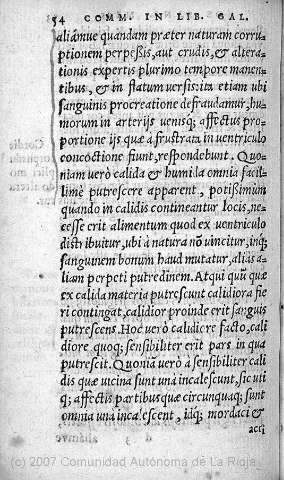 54 COMM. IN LIB. GAL.
aliámue quandam præter naturam corru-
ptionem perpeßis, aut crudis, & altera-
tionis expertis plurimo tempore manen-
tibus, & in flatum versis: ita etiam ubi
sanguinis procreatione defraudamur, hu-
morum in arterijs venisq; affectus pro-
portione ijs quæ a frustrata in ventriculo
concoctione fiunt, respondebunt. Quo-
niam verò calida & humida omnia facil-
limè putrescere apparent, potißimùm
quando in calidis contineantur locis, ne-
cesse erit alimentum quod ex ventriculo
distribuitur, ubi à natura nõ vincitur, inq;
sanguinem bonum haud mutatur, alias a-
liam perpeti putredinem. Atqui quũ quæ
ex calida materia putrescunt calidiora fie
ri contingat, calidior proinde erit sanguis
putrescens. Hoc verò calidiore facto, cali
diore quoq; sensibiliter erit pars in qua
putrescit. Quoniã verò à sensibiliter cali
dis quæ vicina sunt una incalescunt, sic uti
q; affectis partibus quæ circunquaq; sunt
omnia una incalescent, idq; mordaci &
acri
(c) 2007 Comunidad Autónoma de La Rioja